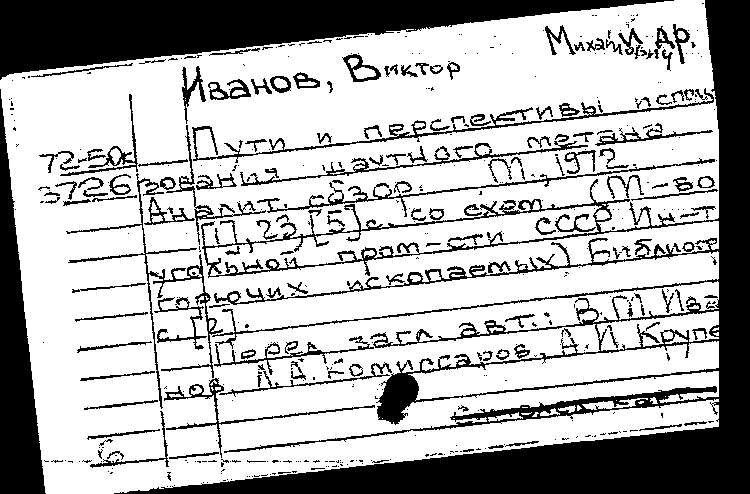 Иванов, Виктор Михайлович и др.
72-50к Пути и перспективы исполь
3726 зования шахтного метана.
Аналит. обзор. М., 1972.
[1], 23, [5] с. со схем. (М-во
угольной пром-сти СССР. Ин-т
горючих ископаемых) Библиогр
с. [2].
Перед загл. авт.: В.М. Ива
нов, Л.А. Комиссаров, А.И. Крупе
См. след. карт.
6